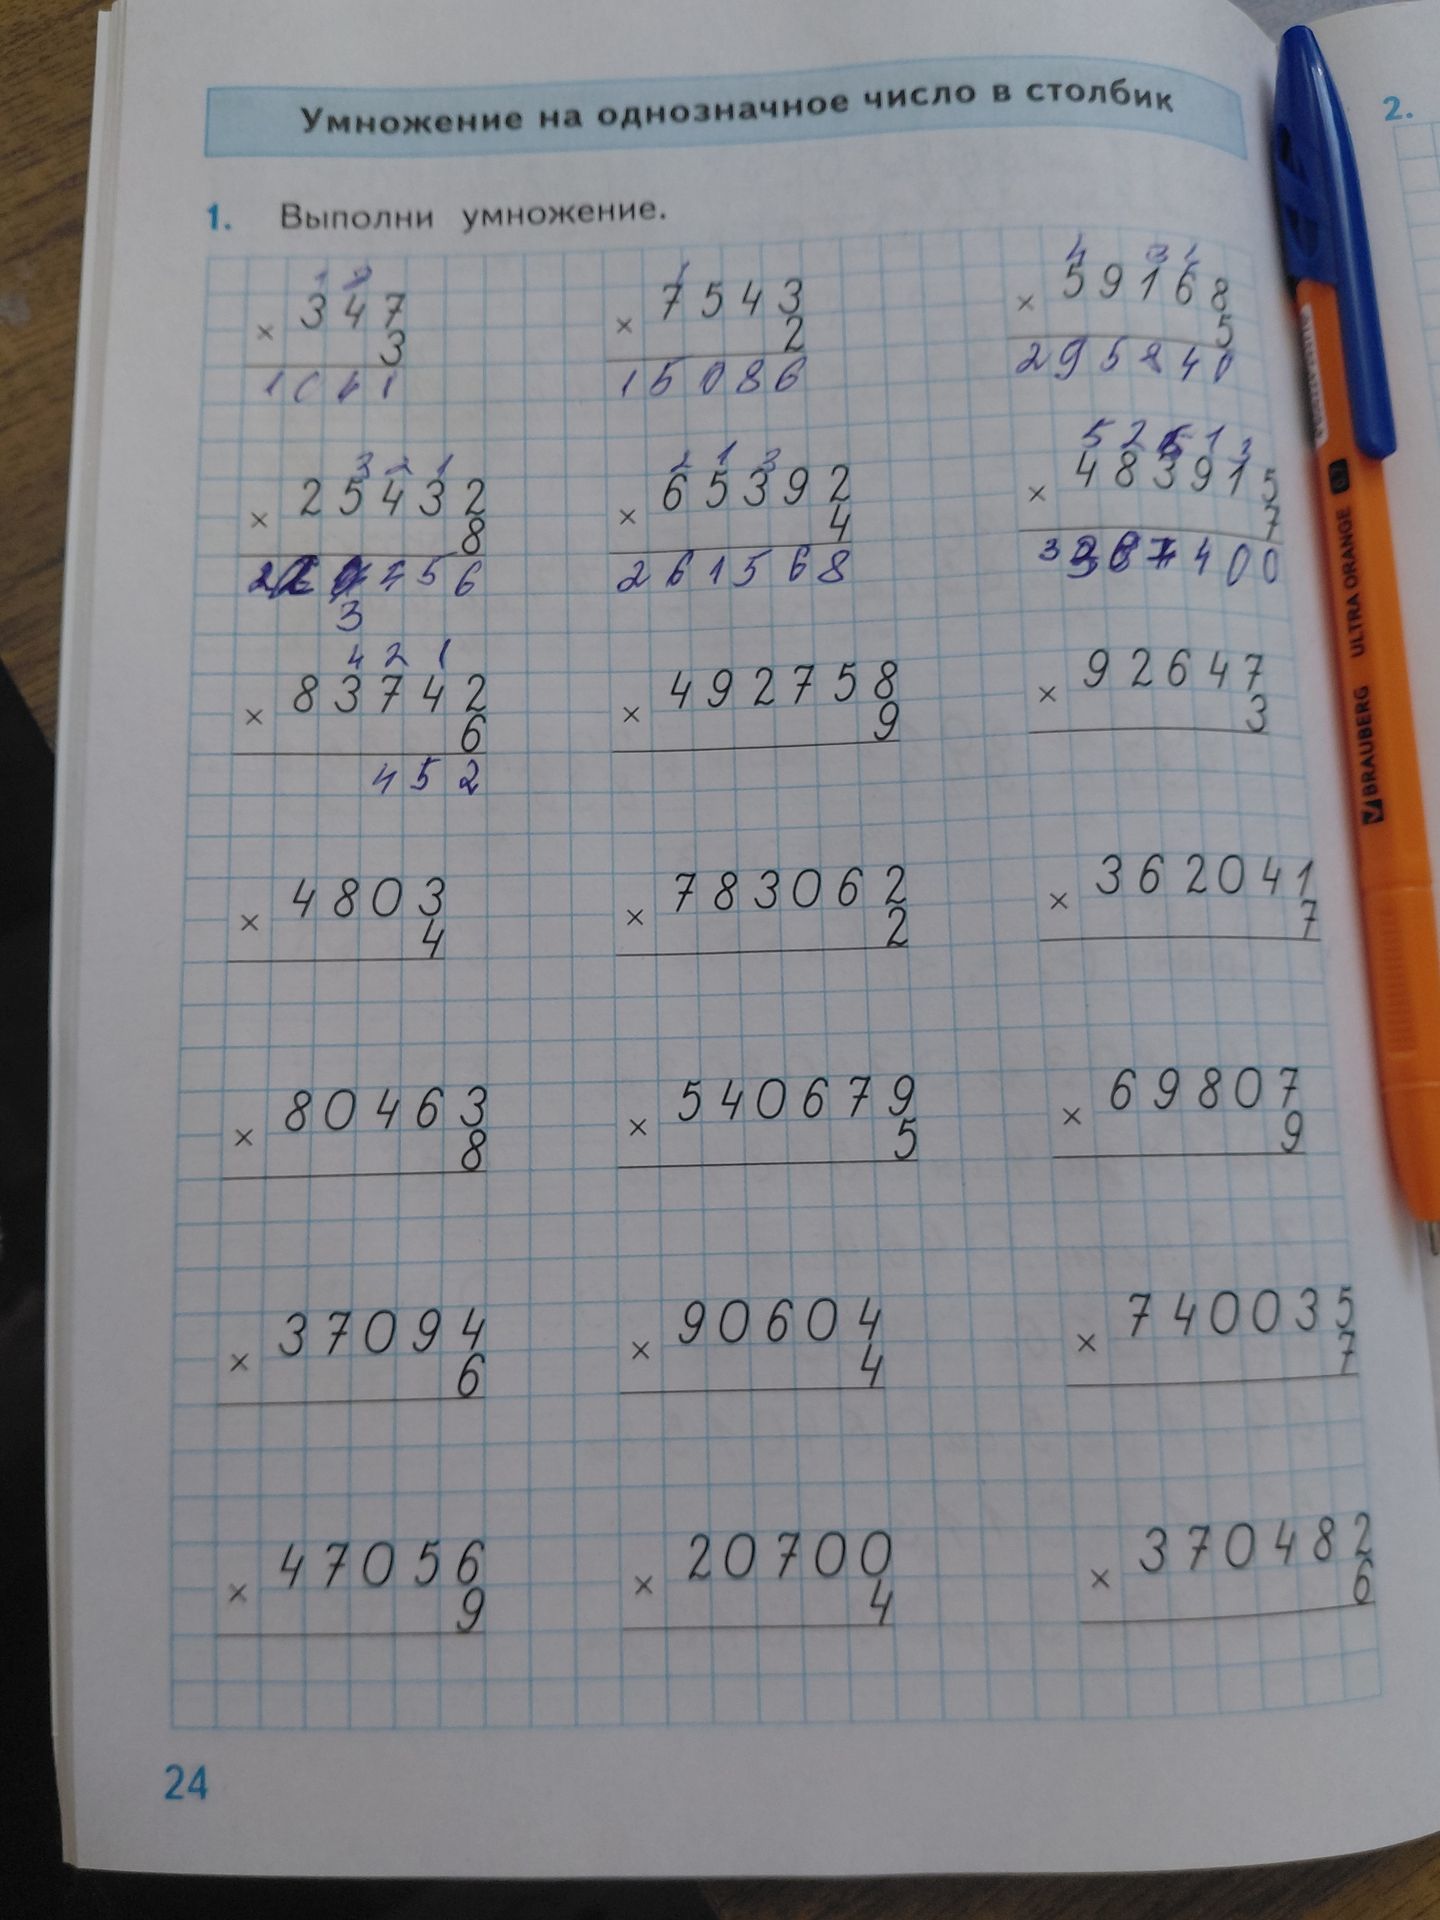 Умножение на однозначное число в столбик
2.
1. Выполни умножение.
1 2
× 347
3
1041
1
× 7543
2
15086
4 3 1
× 59168
5
295840
3 2 1
× 25432
8
456
3
2 1 3
× 65392
4
261568
5 2 6 1 3
× 483915
7
400
4 2 1
× 83742
6
452
× 492758
9
× 92647
3
× 4803
4
× 783062
2
× 362041
7
× 80463
8
× 540679
5
× 69807
9
× 37094
6
× 90604
4
× 740035
7
× 47056
9
× 20700
4
× 370482
6
24
BRAUBERG ULTRA ORANGE